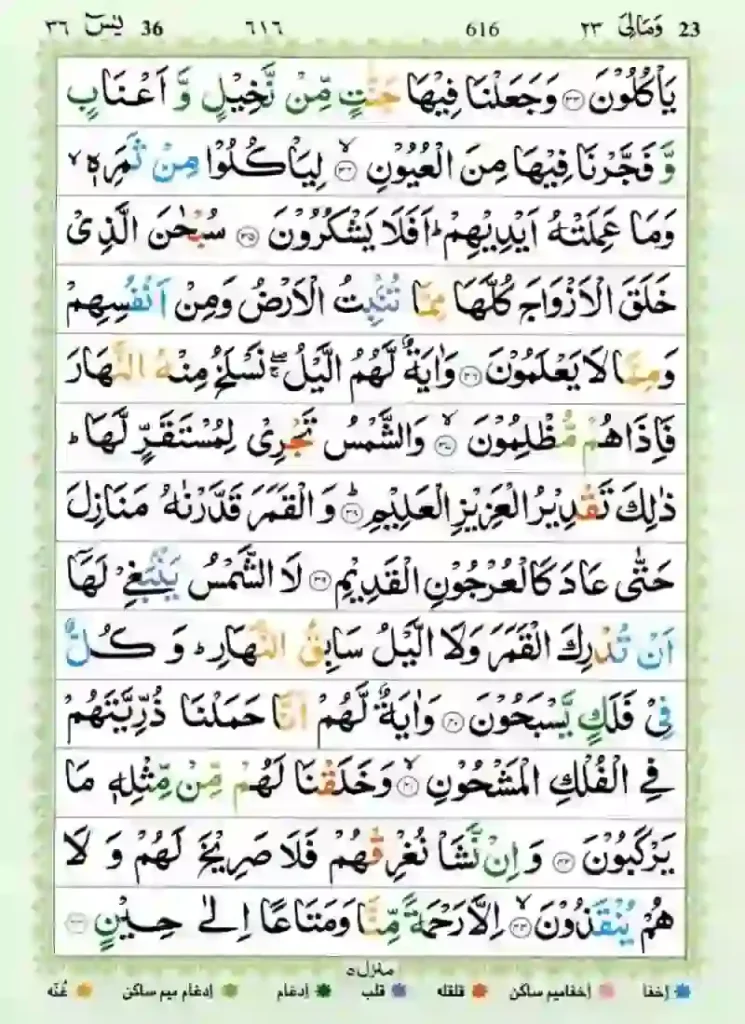 23 وَمَالِىَ ٢٣ 616 ٦١٦ 36 يٰسٓ ٣٦
يَاْكُلُوْنَ ﴿۳۳﴾ وَجَعَلْنَا فِيْهَا جَنّٰتٍ مِّنْ نَّخِيْلٍ وَّ اَعْنَابٍ
وَّ فَجَّرْنَا فِيْهَا مِنَ الْعُيُوْنِ ﴿۳۴﴾ لِيَاْكُلُوْا مِنْ ثَمَرِهٖ ۙ
وَمَا عَمِلَتْهُ اَيْدِيْهِمْ ؕ اَفَلَا يَشْكُرُوْنَ ﴿۳۵﴾ سُبْحٰنَ الَّذِىْ
خَلَقَ الْاَزْوَاجَ كُلَّهَا مِمَّا تُنْۢبِتُ الْاَرْضُ وَمِنْ اَنْفُسِهِمْ
وَمِمَّا لَا يَعْلَمُوْنَ ﴿۳۶﴾ وَاٰيَةٌ لَّهُمُ الَّيْلُ ۖۚ نَسْلَخُ مِنْهُ النَّهَارَ
فَاِذَا هُمْ مُّظْلِمُوْنَ ﴿۳۷﴾ وَالشَّمْسُ تَجْرِىْ لِمُسْتَقَرٍّ لَّهَا ؕ
ذٰلِكَ تَقْدِيْرُ الْعَزِيْزِ الْعَلِيْمِ ﴿۳۸﴾ وَالْقَمَرَ قَدَّرْنٰهُ مَنَازِلَ
حَتّٰى عَادَ كَالْعُرْجُوْنِ الْقَدِيْمِ ﴿۳۹﴾ لَا الشَّمْسُ يَنْۢبَغِىْ لَهَاۤ
اَنْ تُدْرِكَ الْقَمَرَ وَلَا الَّيْلُ سَابِقُ النَّهَارِ ؕ وَ كُلٌّ
فِىْ فَلَكٍ يَّسْبَحُوْنَ ﴿۴۰﴾ وَاٰيَةٌ لَّهُمْ اَنَّا حَمَلْنَا ذُرِّيَّتَهُمْ
فِى الْفُلْكِ الْمَشْحُوْنِ ﴿۴۱﴾ وَخَلَقْنَا لَهُمْ مِّنْ مِّثْلِهٖ مَا
يَرْكَبُوْنَ ﴿۴۲﴾ وَاِنْ نَّشَاْ نُغْرِقْهُمْ فَلَا صَرِيْخَ لَهُمْ وَ لَا
هُمْ يُنْقَذُوْنَ ﴿۴۳﴾ اِلَّا رَحْمَةً مِّنَّا وَمَتَاعًا اِلٰى حِيْنٍ ﴿۴۴﴾
منزل ۵
إخفا إخفا ميم ساكن قلقله قلب إدغام إدغام ميم ساكن غُنّه